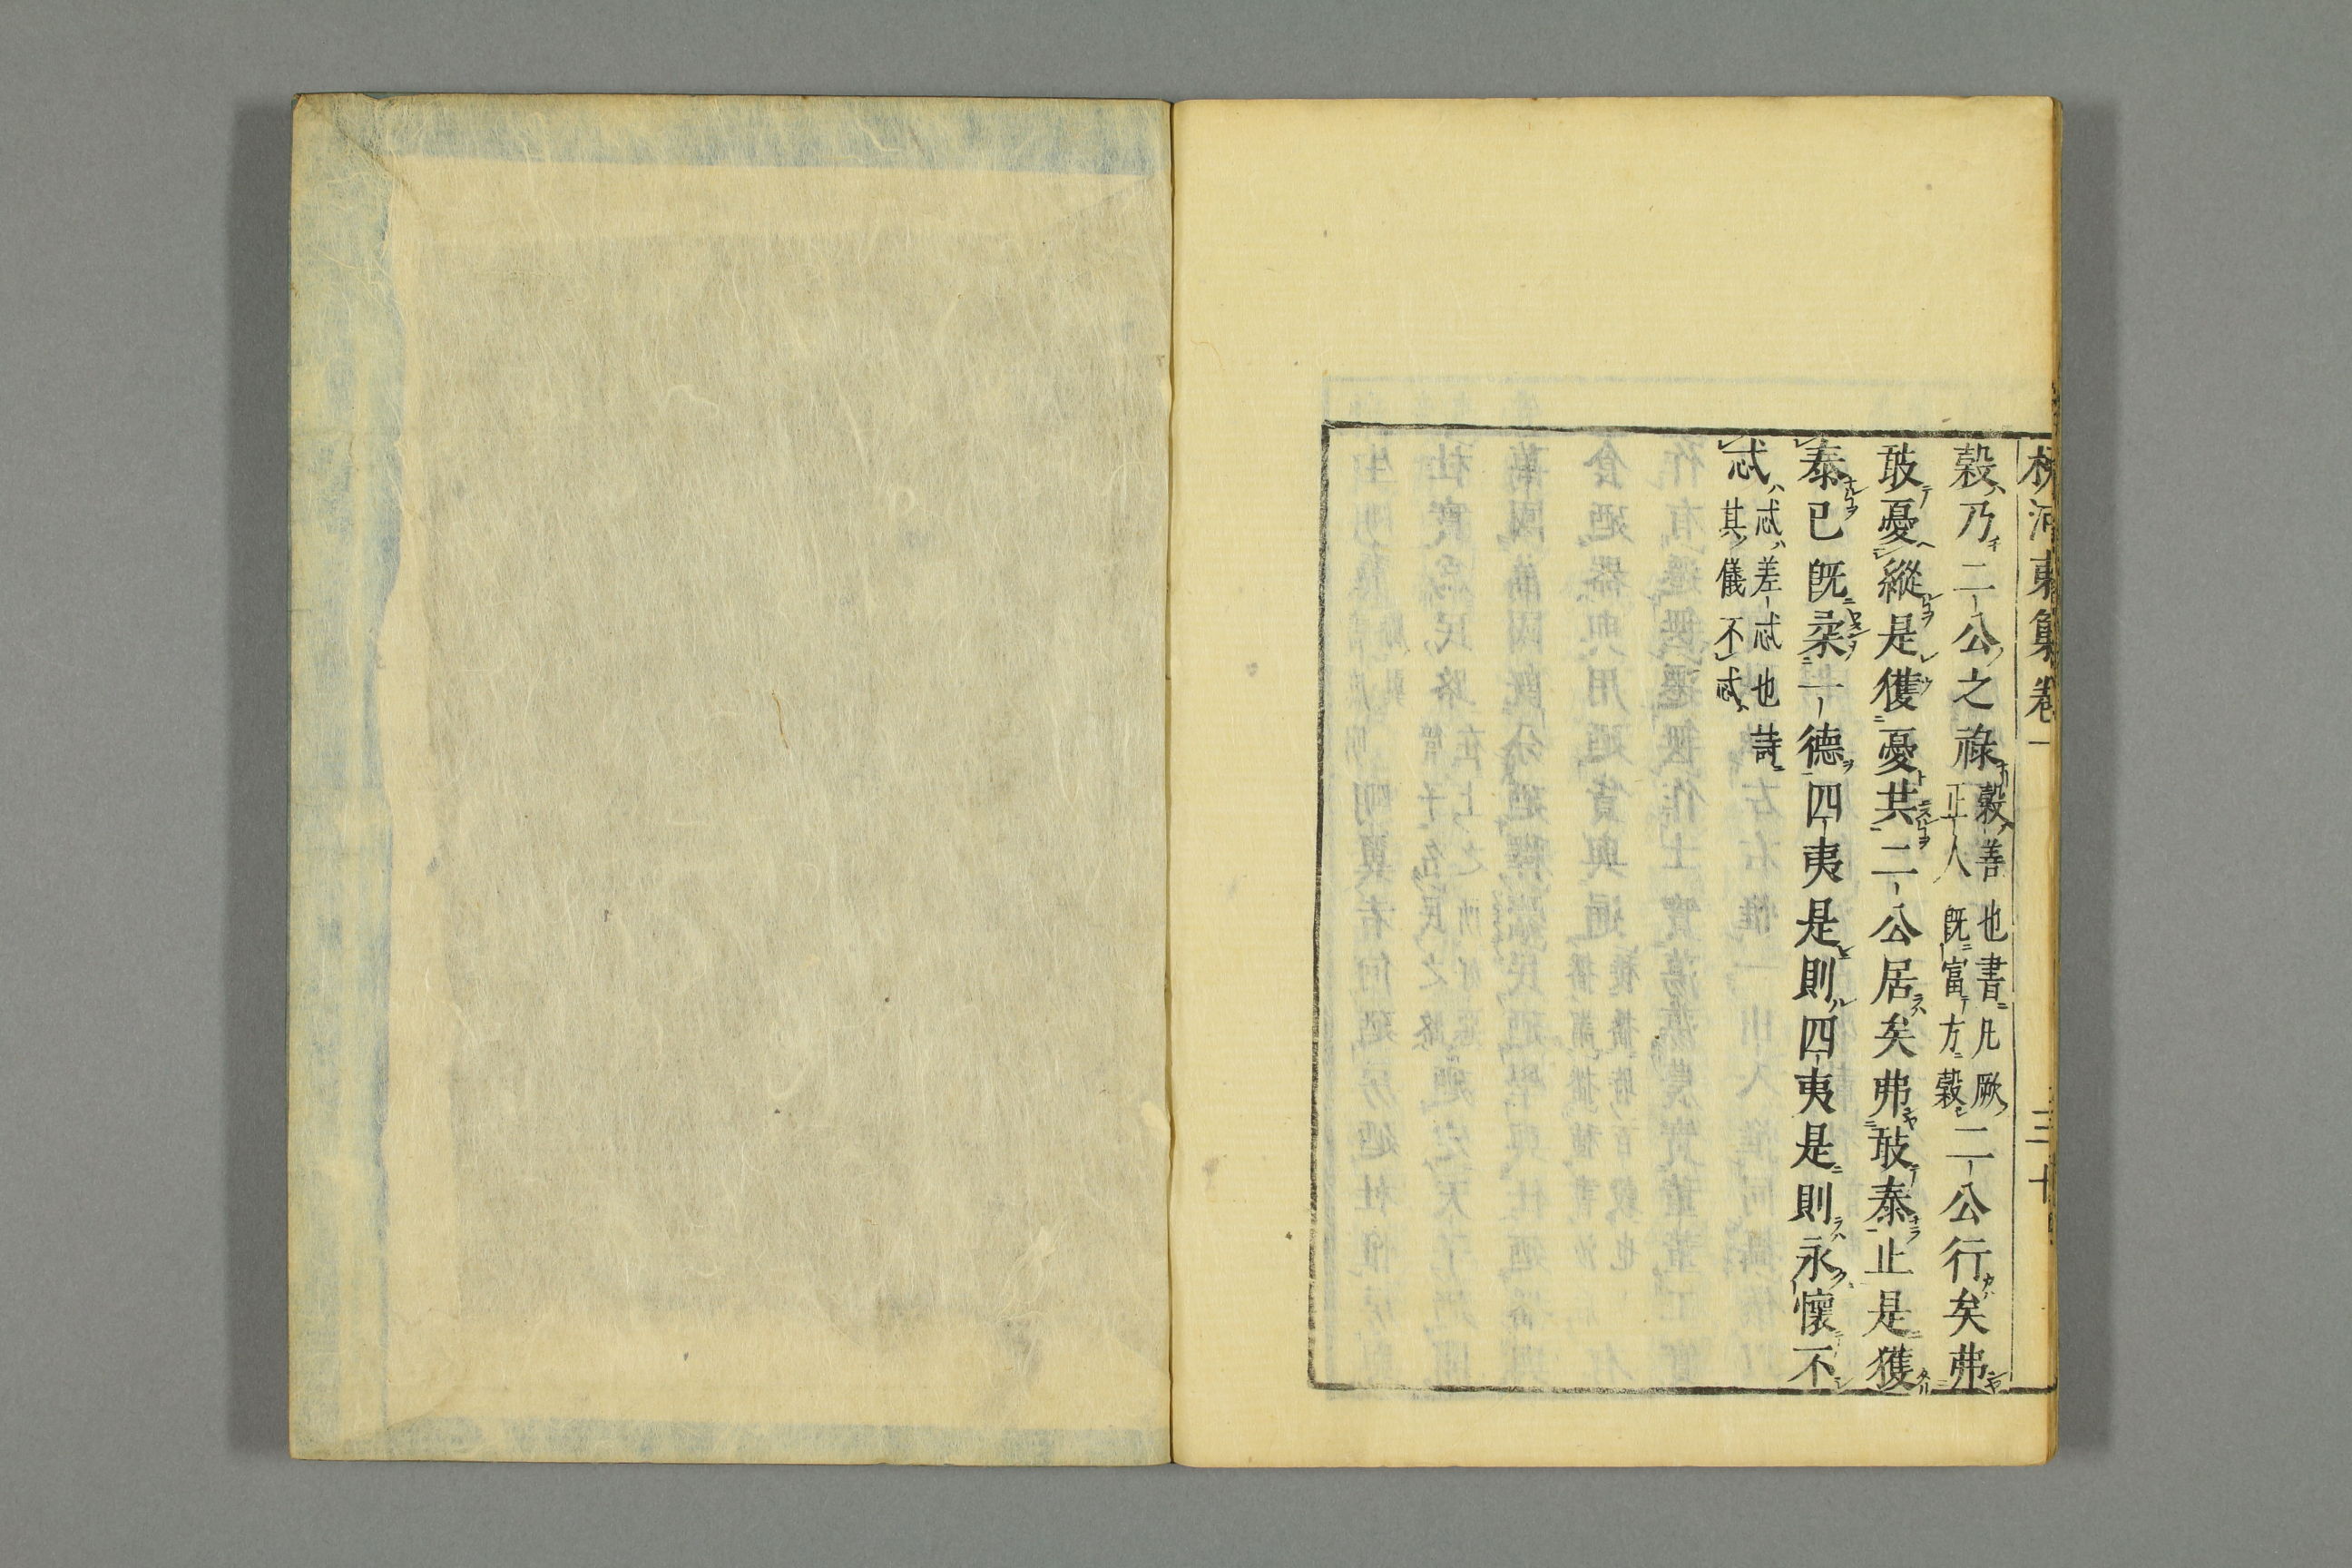 柳河東集卷一 三十
穀乃二公之祿穀善也書凡厥正人既富方穀二公行矣弗
敢憂縱是獲憂共二公居矣弗敢泰止是獲
泰已既柔一德四夷是則四夷是則永懷不
忒忒差忒也詩其儀不忒